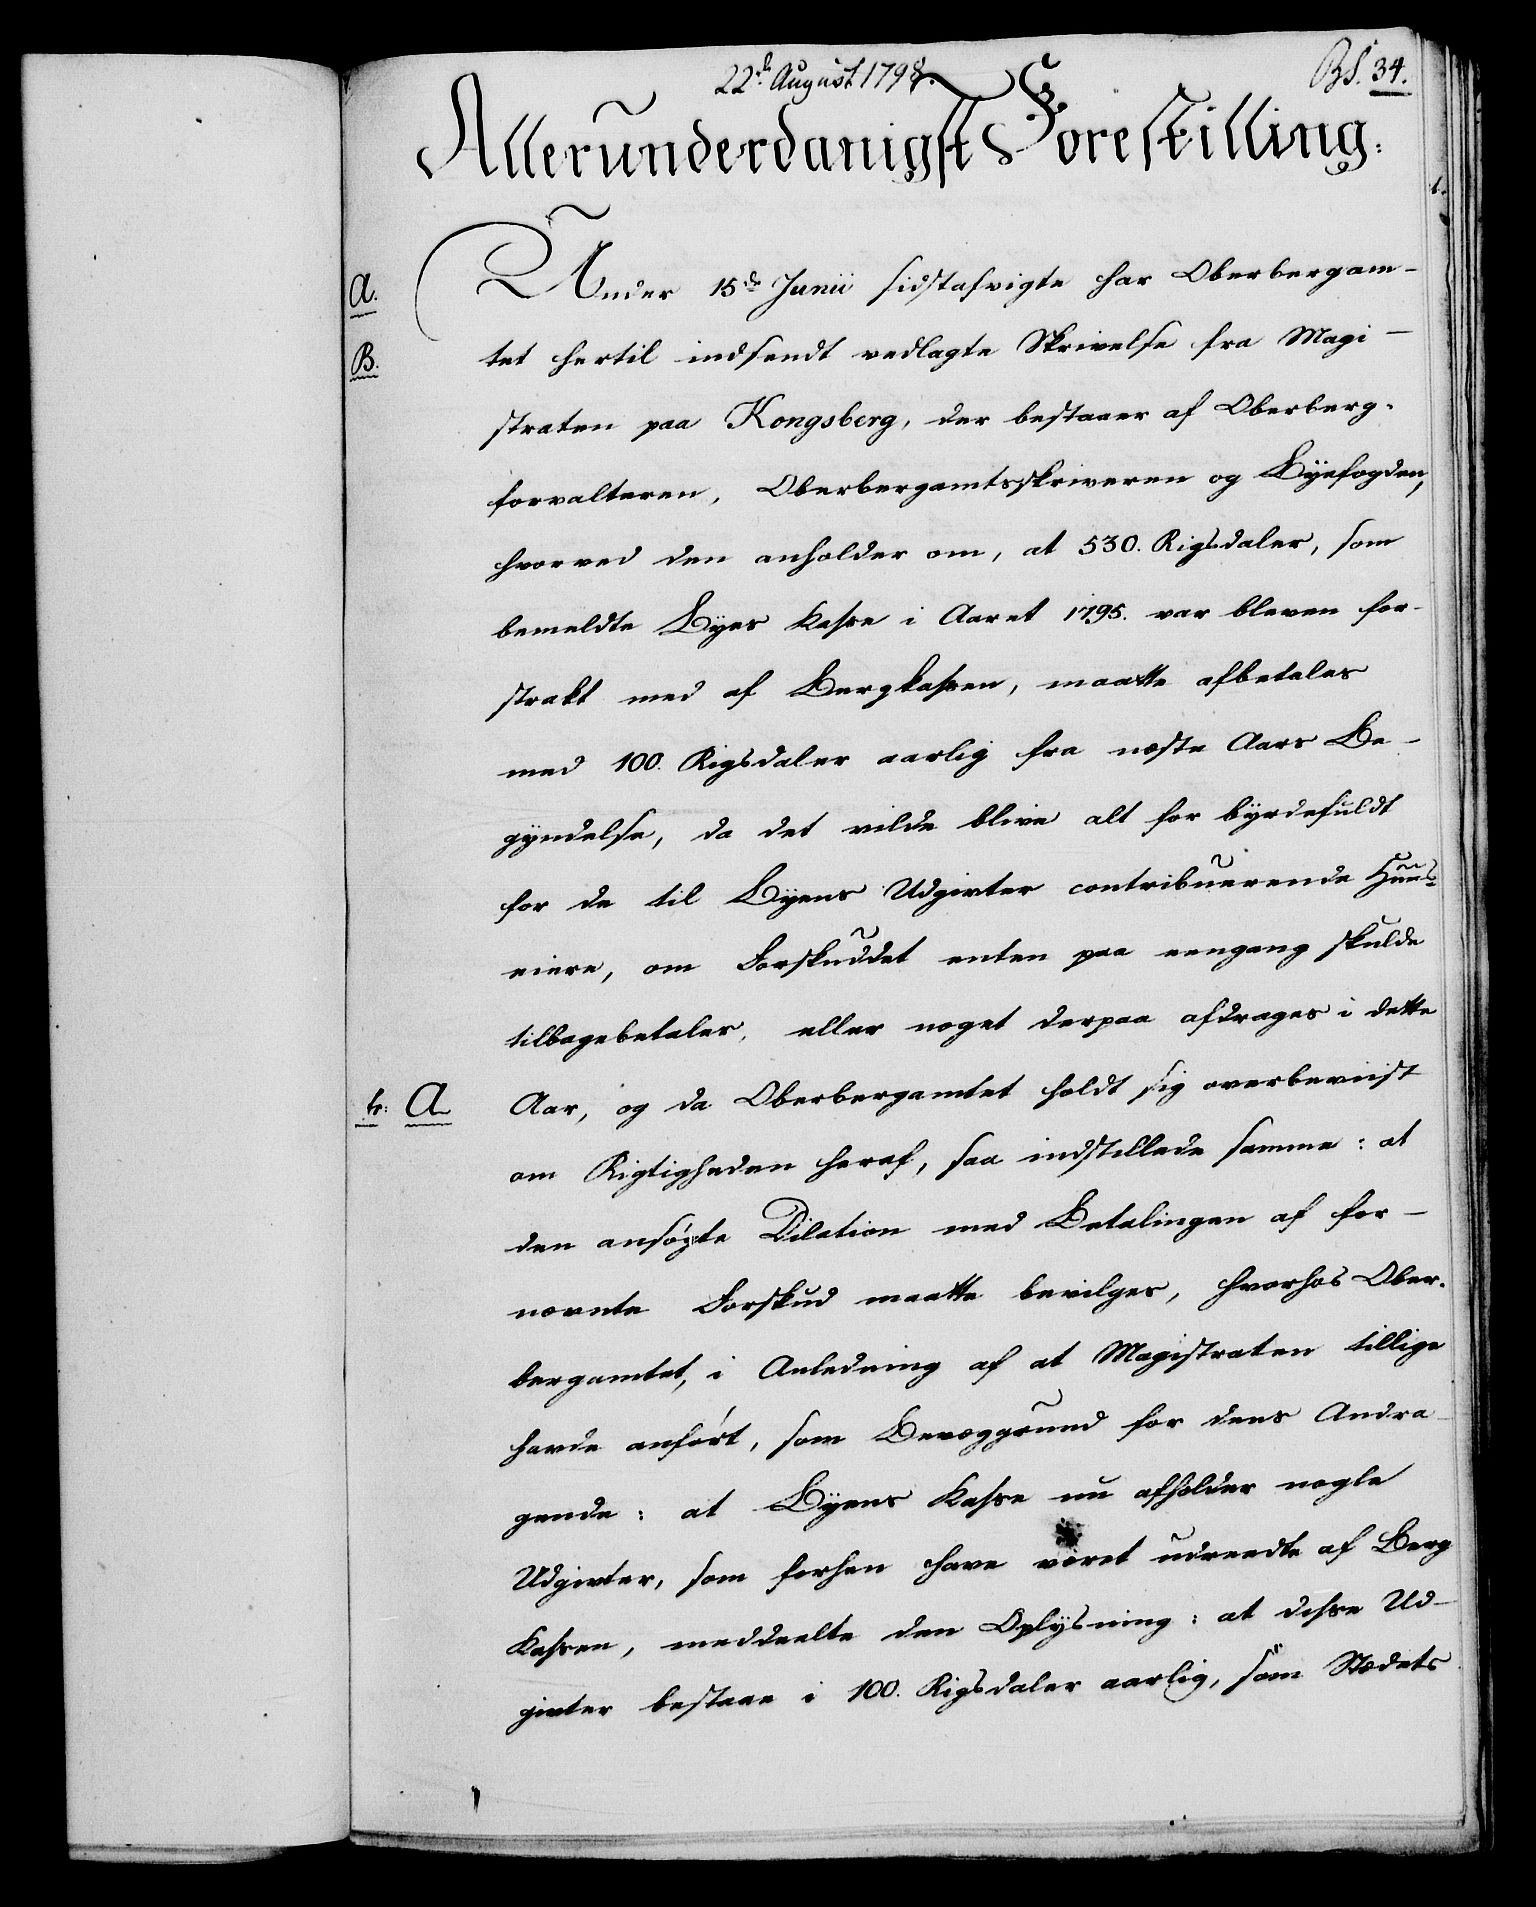 22de August 1798.
BS. 34.
Allerunderdanigst Forestilling.
A. Under 15de Junii sidstafvigte har Oberbergam-
B. tet hertil indsendt vedlagte Skrivelse fra Magi-
straten paa Kongsberg, der bestaaer af Oberberg-
forvalteren, Oberbergamtsskriveren og Byefogden,
hvorved den anholder om, at 530. Rigsdaler, som
bemeldte Byes Kasse i Aaret 1795. var bleven for-
strakt med af Bergkassen, maatte afbetales
med 100. Rigsdaler aarlig fra næste Aars Be-
gyndelse, da det vilde blive alt for byrdefuldt
for de til Byens Udgivter contribuerende Huus-
eiere, om Forskuddet enten paa eengang skulde
tilbagebetales, eller noget derpaa afdrages i dette
A Aar, og da Oberbergamtet holdt sig overbeviist
om Rigtigheden heraf, saa indstillede samme: at
den ansøgte Dilation med Betalingen af for-
nævnte Forskud maatte bevilges, hvorhos Ober-
bergamtet, i Anledning af at Magistraten tillige
havde anført, som Bevæggrund for dens Andra-
gende: at Byens Kasse nu afholder nogle
Udgivter, som forhen have været udreedte af Berg
Kassen, meddeelte den Oplysning: at disse Ud-
givter bestaae i 100. Rigsdaler aarlig, som Stædets